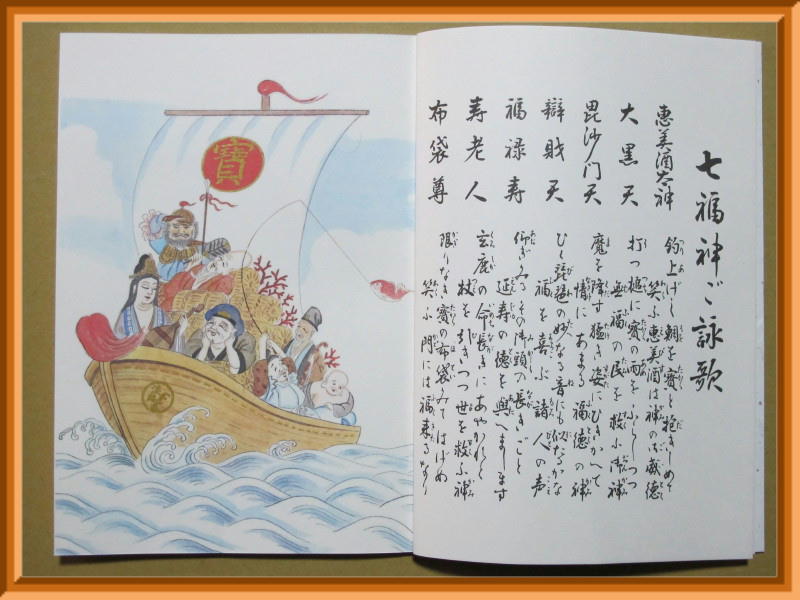 寶
七福神ご詠歌
恵美酒太神
釣上げし鯛を寶と抱きしめ
笑ふ恵美酒は神の御威徳
大黒天
打つ槌に寶の雨をふらしつつ
無福の民を救ふ御神
毘沙门天
魔を障す猛き姿にひきかへて
情にあまる福徳の神
辯財天
ひく琵琶の妙なる音にも似たるかな
福を喜ぶ諸人の声
福禄寿
仰ぎみるその御頭の長きごと
延寿の徳を與へまします
寿老人
玄鹿の命長きにあやかれと
杖を引きつつ世を救ふ神
布袋尊
限りなき寶の布袋みてはじめ
笑ふ門には福来るなり